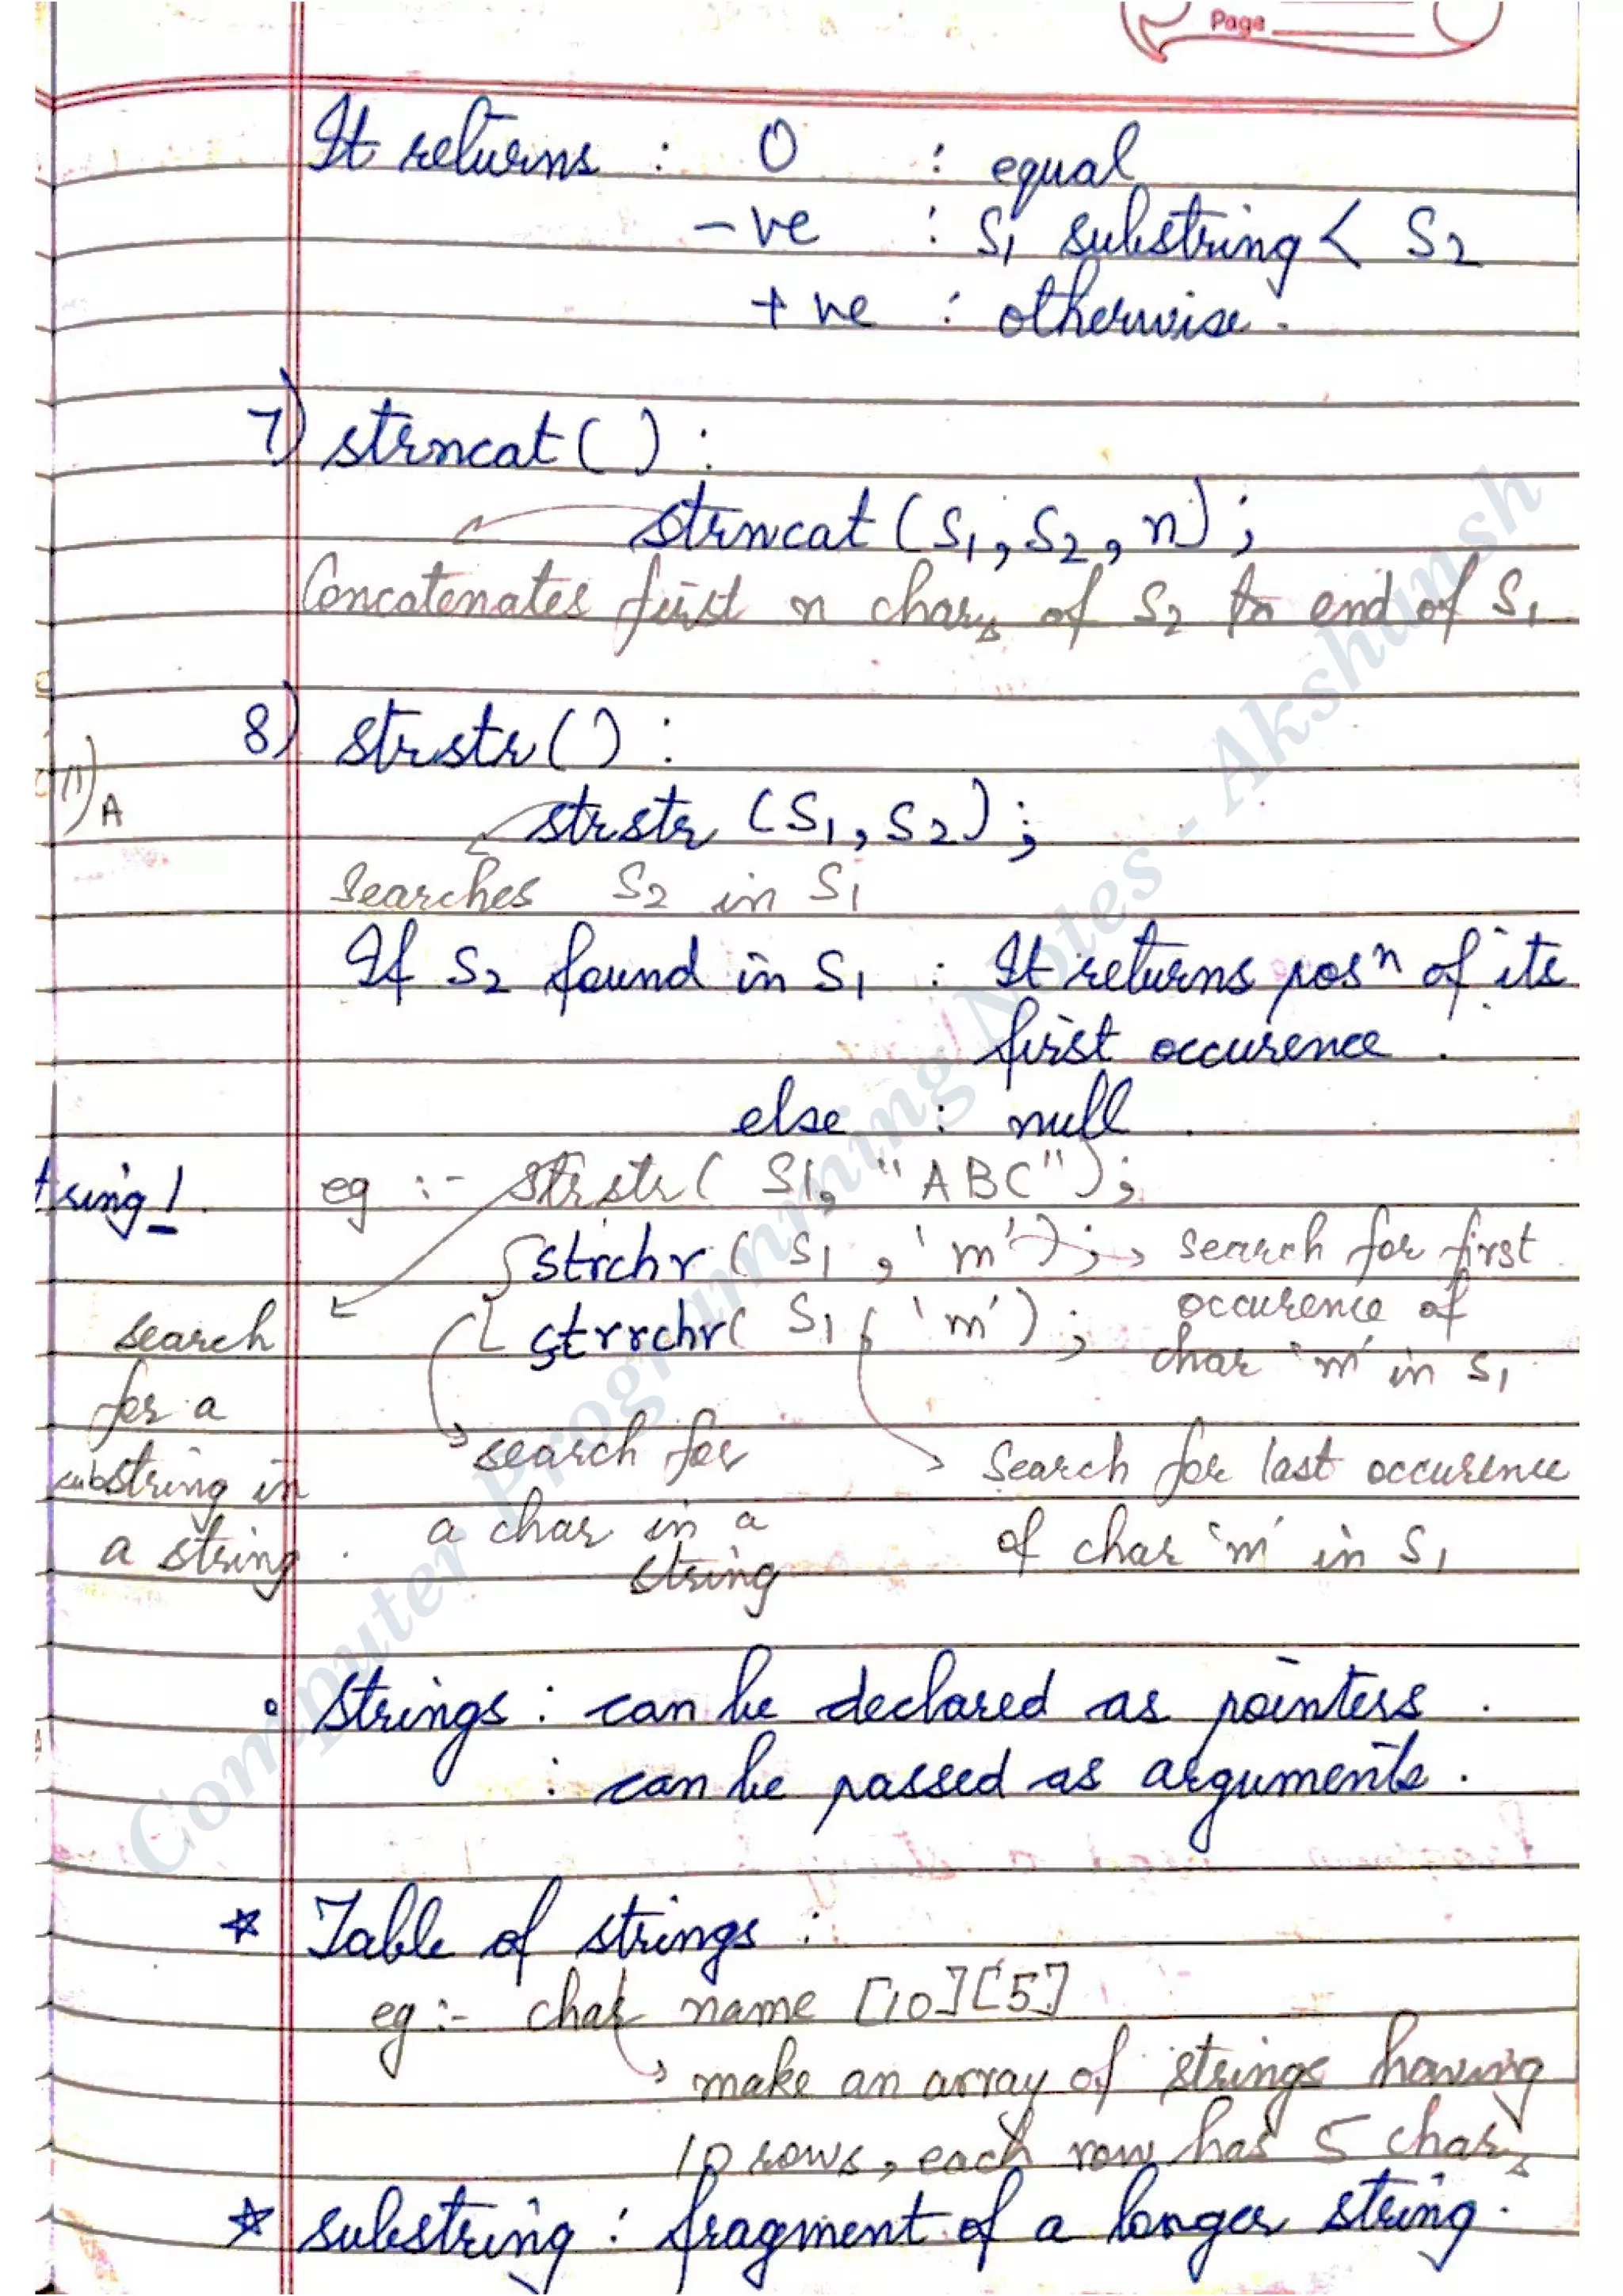 Page
It returns : 0 : equal
-ve : S1 substring < S2
+ve : otherwise.
7) strncat( ) :
strncat (S1, S2, n) ;
Concatenates first n chars of S2 to end of S1
8) strstr( ) :
A
strstr (S1, S2) ;
Searches S2 in S1
If S2 found in S1 : It returns posn of its
first occurence .
else : null .
eg :- strstr( S1, "ABC") ;
strchr ( S1 , 'm') ; → search for first
occurence of
char 'm' in S1
strrchr( S1 , 'm') ;
search
for a
substring in
a string .
search for
a char in a
string
Search for last occurence
of char 'm' in S1
• Strings : can be declared as pointers .
: can be passed as arguments .
* Table of strings :
eg :- char name [10][5]
make an array of strings having
10 rows, each row has 5 chars
* substring : fragment of a longer string .
Computer Programming Notes - Akshansh